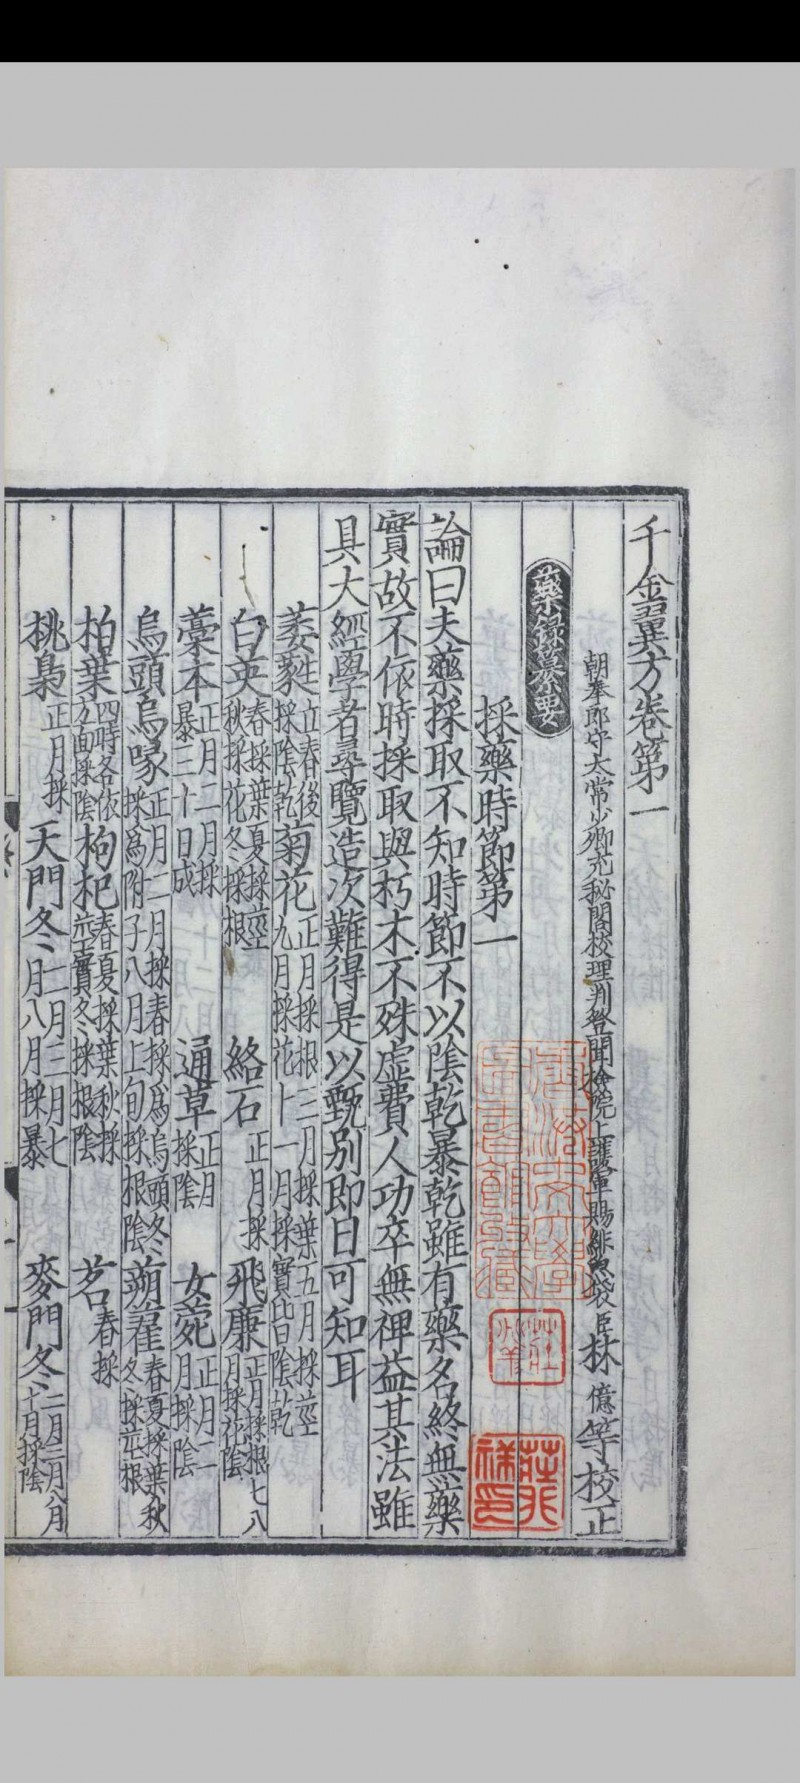 千金翼方卷第一
朝奉郎守太常少卿充秘閣校理判登聞檢院上護軍賜緋魚袋臣林億等校正
藥錄纂要
採藥時節第一
論曰夫藥採取不知時節不以陰乾暴乾雖有藥名終無藥
實故不依時採取與朽木不殊虛費人功卒無裨益其法雖
具大經學者尋覽造次難得是以甄別即日可知耳
萎蕤立春後採陰乾 菊花正月採根三月採葉五月採莖九月採花十一月採實皆陰乾
白英春採葉夏採莖秋採花冬採根 絡石正月採 飛廉正月採根七八月採花陰
藁本正月二月採暴三十日成 通草正月採陰 女菀正月二月採陰
烏頭烏喙正月二月採春採為烏頭冬採為附子八月上旬採根陰 蒴藋春夏採葉秋冬採莖根
柏葉四時各依方面採陰 枸杞春夏採葉秋採莖實冬採根陰 茗春採
桃梟正月採 天門冬二月三月七月八月採暴 麥門冬二月三月八月十月採陰